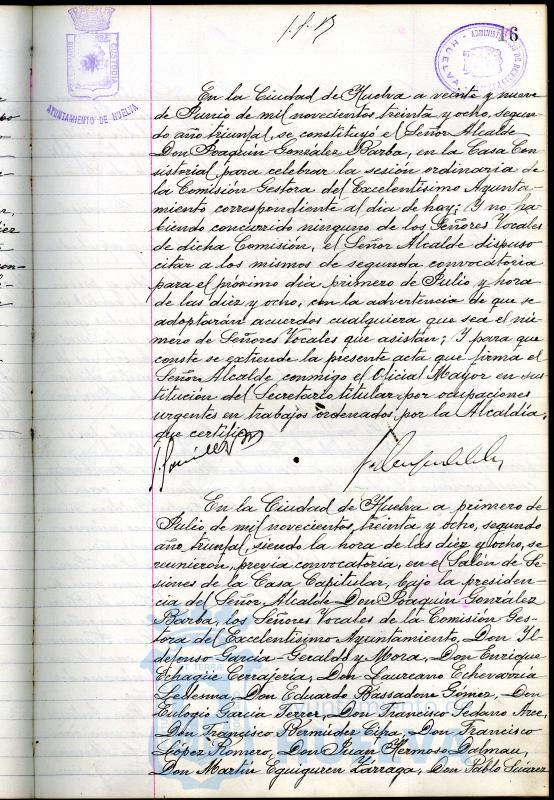 16
AYUNTAMIENTO DE HUELVA
En la Ciudad de Huelva a veinte y nueve
de Junio de mil novecientos treinta y ocho, segun-
do año triunfal, se constituyó el Señor Alcalde
Don Joaquín González Barba, en la Casa Con-
sistorial para celebrar la sesión ordinaria de
la Comisión Gestora del Excelentísimo Ayunta-
miento correspondiente al dia de hoy; Y no ha-
biendo concurrido ninguno de los Señores Vocales
de dicha Comisión, el Señor Alcalde dispuso
citar a los mismos de segunda convocatoria
para el próximo dia primero de Julio y hora
de las diez y ocho, con la advertencia de que se
adoptarán acuerdos cualquiera que sea el nú-
mero de Señores Vocales que asistan; Y para que
conste se extiende la presente acta que firma el
Señor Alcalde conmigo el Oficial Mayor en sus-
titución del Secretario titular por ocupaciones
urgentes en trabajos ordenados por la Alcaldía,
que certifico
En la Ciudad de Huelva a primero de
Julio de mil novecientos treinta y ocho, segundo
año triunfal, siendo la hora de las diez y ocho, se
reunieron, previa convocatoria, en el Salón de Se-
siones de la Casa Capitular, bajo la presiden-
cia del Señor Alcalde Don Joaquín González
Barba, los Señores Vocales de la Comisión Ges-
tora del Excelentísimo Ayuntamiento, Don Il-
defonso García-Geraldo y Mora, Don Enrique
Echague Cerrajería, Don Laureano Echevarría
Ledesma, Don Eduardo Bassadone Gómez, Don
Eulogio García Ferrer, Don Francisco Sedano Arce,
Don Francisco Bermúdez Elpa, Don Francisco
López Romero, Don Juan Hermoso Dalmau,
Don Martín Eguiguren Zárraga, Don Pablo Suárez